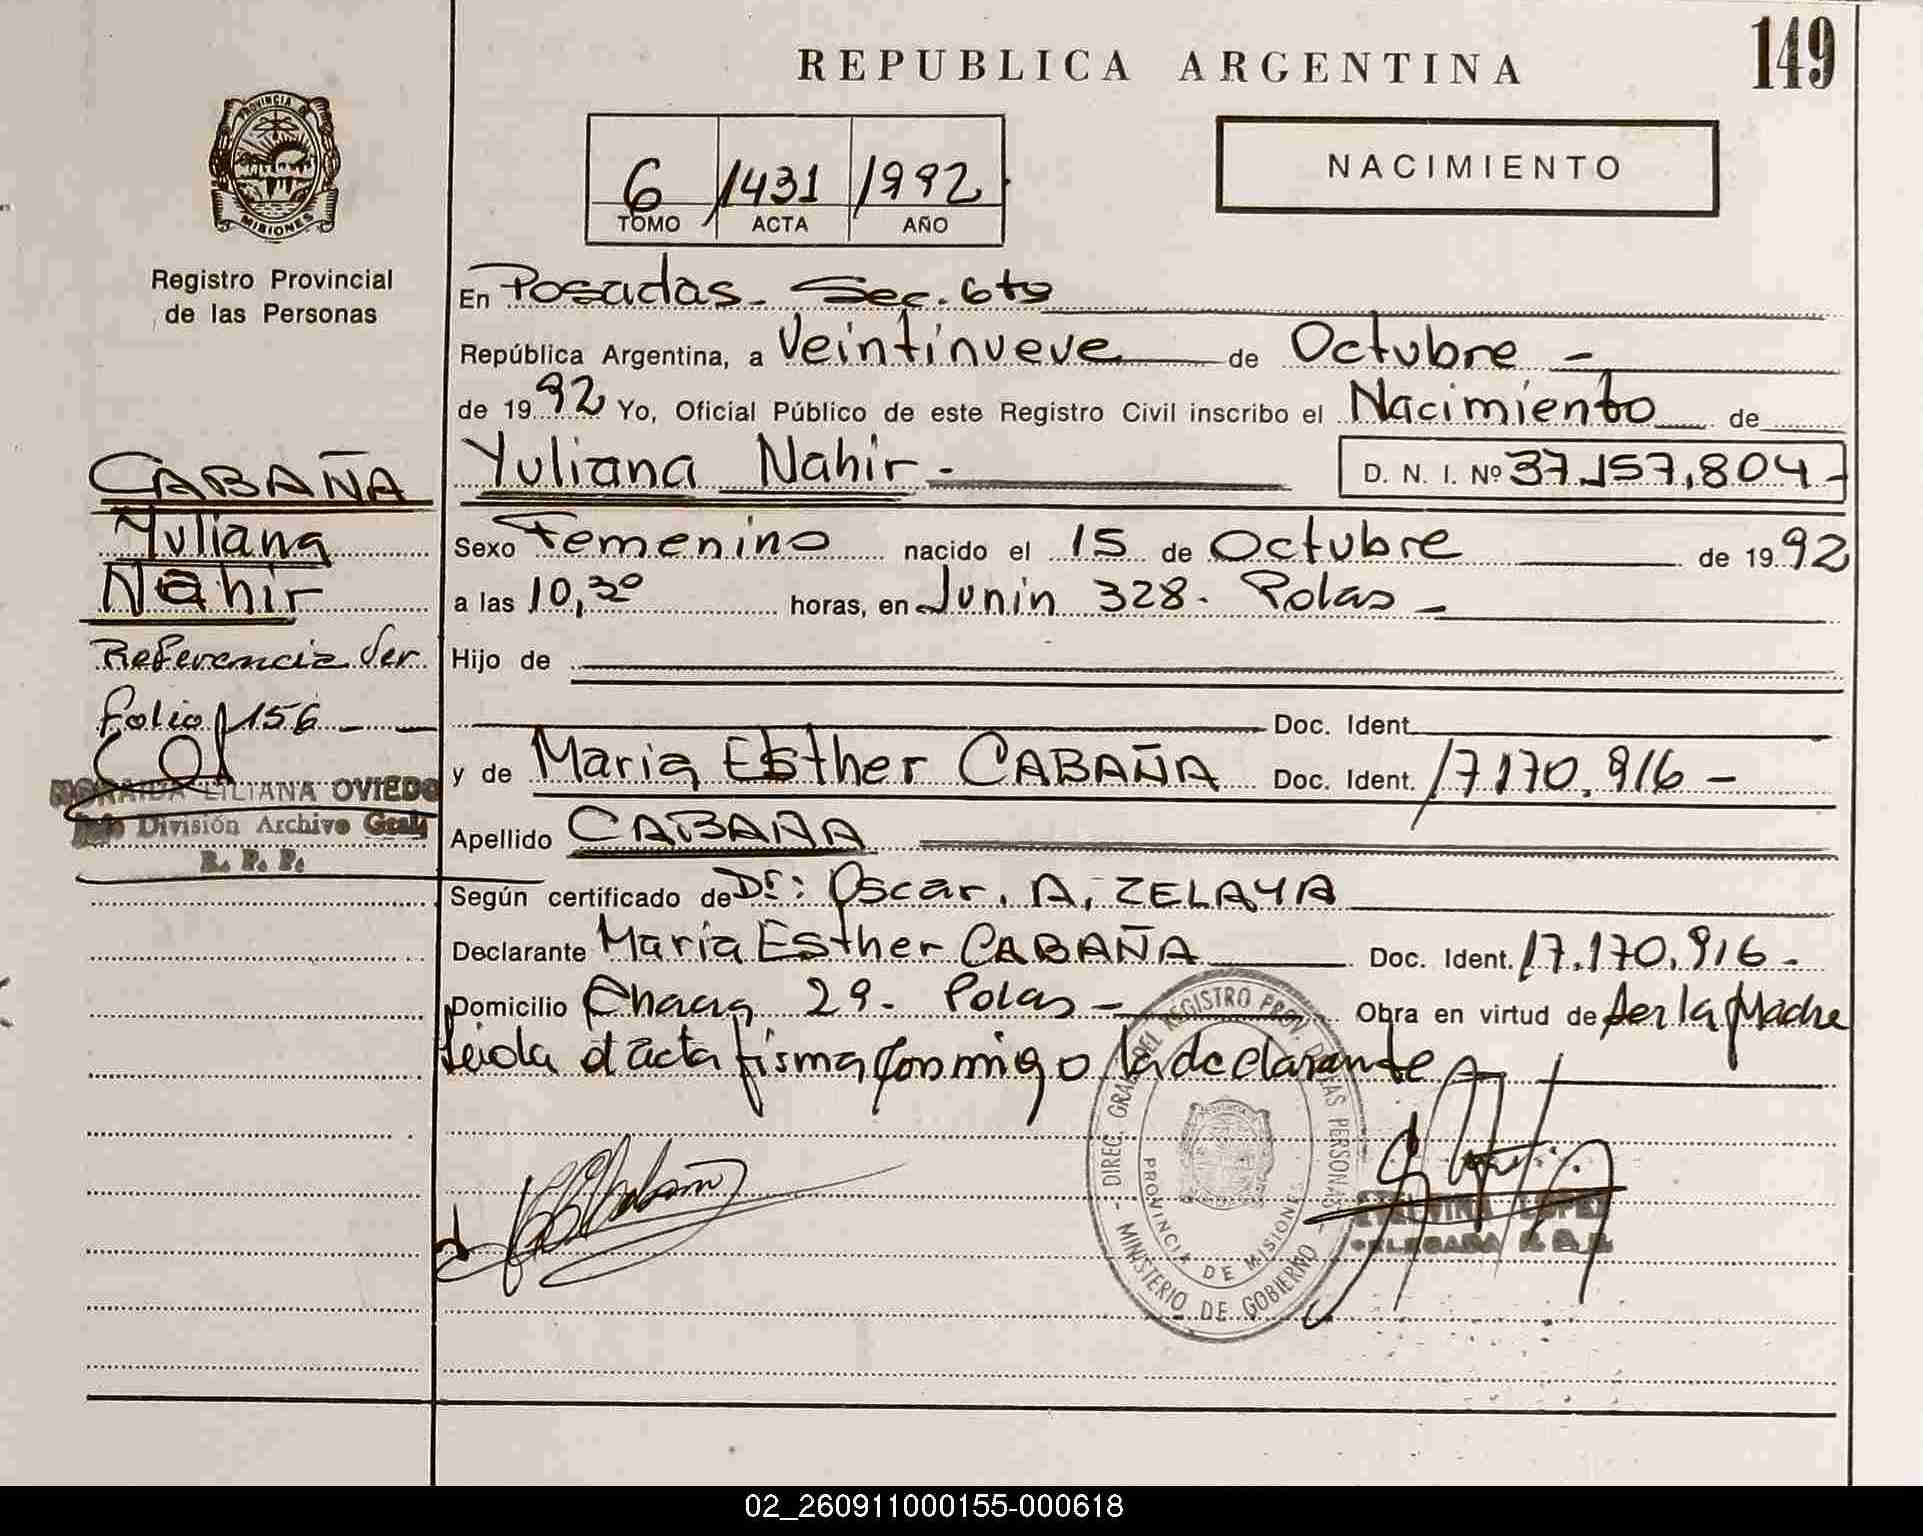 149
REPUBLICA ARGENTINA
NACIMIENTO
6 1431 1992
TOMO ACTA AÑO
PROVINCIA DE
MISIONES
Registro Provincial
de las Personas
En Posadas - Sec. 6ta
República Argentina, a Veintinueve de Octubre -
de 1992 Yo, Oficial Público de este Registro Civil inscribo el Nacimiento de
Yuliana Nahir - D. N. I. Nº 37.157,804 -
Sexo Femenino nacido el 15 de Octubre de 1992
a las 10,30 horas, en Junin 328 - Polas -
Hijo de
Doc. Ident.
y de Maria Esther CABAÑA Doc. Ident. 17170.916 -
Apellido CABAÑA
Según certificado de Dr: Oscar. A. ZELAYA
Declarante Maria Esther CABAÑA Doc. Ident. 17.170.916 -
Domicilio Chacra 29 - Polas - Obra en virtud de ser la Madre
Leida el acta firma conmigo la declarante
CABAÑA
Yuliana
Nahir
Referencia Ver
folio 156
LILIANA OVIEDO
Jefe División Archivo Gral
R. P. P.
DIREC. GRAL. DEL REGISTRO PROV. DE LAS PERSONAS
PROVINCIA DE MISIONES
MINISTERIO DE GOBIERNO
LOPEZ
02_260911000155-000618